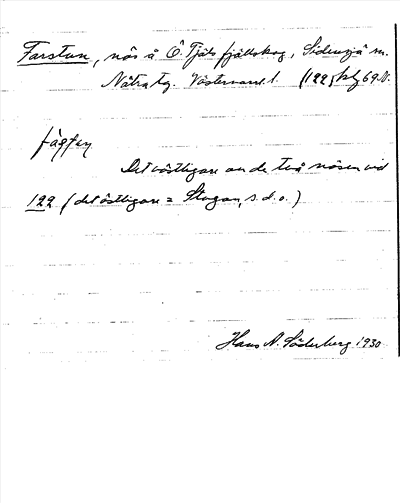 Farstun, näs å Ö. Tjäls fjällskog, Sidensjö sn.
Nätra tg. Västernorrl. l. (122) kbl 69 N.
Det västligare av de två näsen vid
122 (det östligare = Stugan, s. d. o.)
Hans A. Söderberg 1930